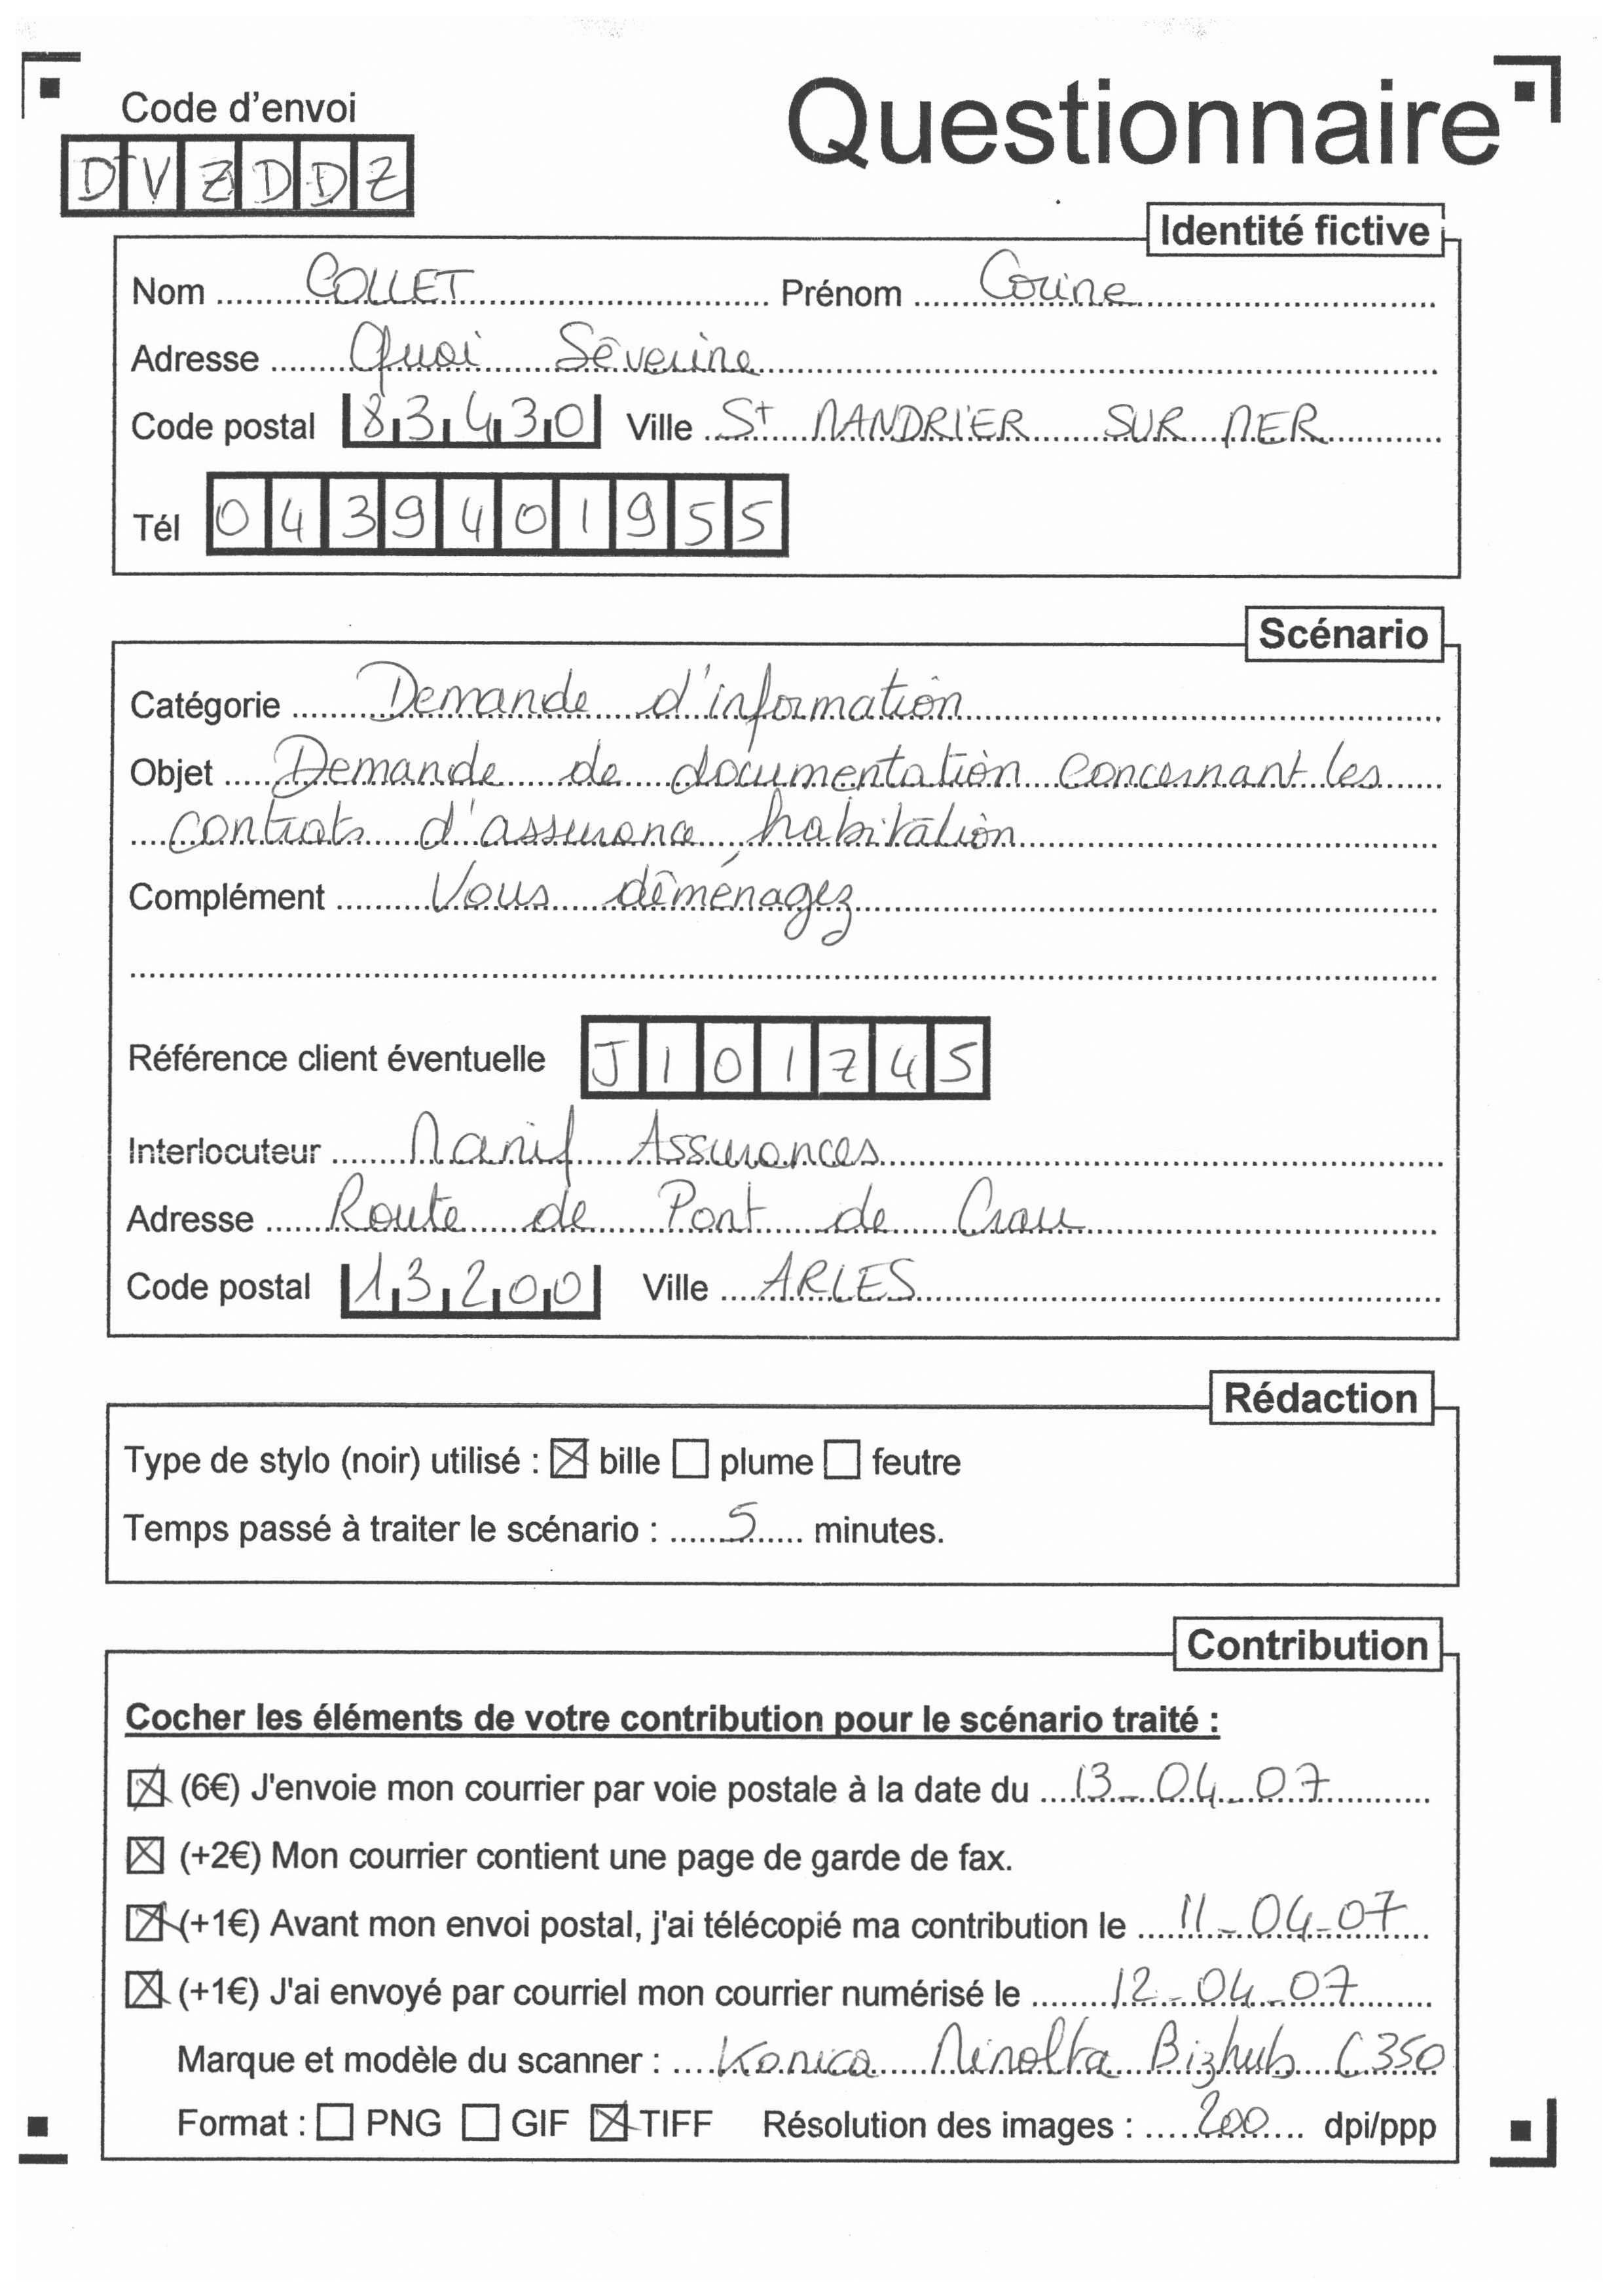 Questionnaire
Code d'envoi
DVZDDZ
Identité fictive
Nom COLLET Prénom Corine
Adresse Quai Séverine
Code postal 83430 Ville St MANDRIER SUR MER
Tél 0439401955
Scénario
Catégorie Demande d'information
Objet Demande de documentation concernant les
contrats d'assurance habitation
Complément Vous déménagez
Référence client éventuelle J101745
Interlocuteur Manif Assurances
Adresse Route de Pont de Crau
Code postal 13200 Ville ARLES
Rédaction
Type de stylo (noir) utilisé : ☒ bille ☐ plume ☐ feutre
Temps passé à traiter le scénario : 5 minutes.
Contribution
Cocher les éléments de votre contribution pour le scénario traité :
☒ (6€) J'envoie mon courrier par voie postale à la date du 13-04-07
☒ (+2€) Mon courrier contient une page de garde de fax.
☒ (+1€) Avant mon envoi postal, j'ai télécopié ma contribution le 11-04-07
☒ (+1€) J'ai envoyé par courriel mon courrier numérisé le 12-04-07
Marque et modèle du scanner : Konica Minolta Bizhub C350
Format : ☐ PNG ☐ GIF ☒ TIFF Résolution des images : 200 dpi/ppp